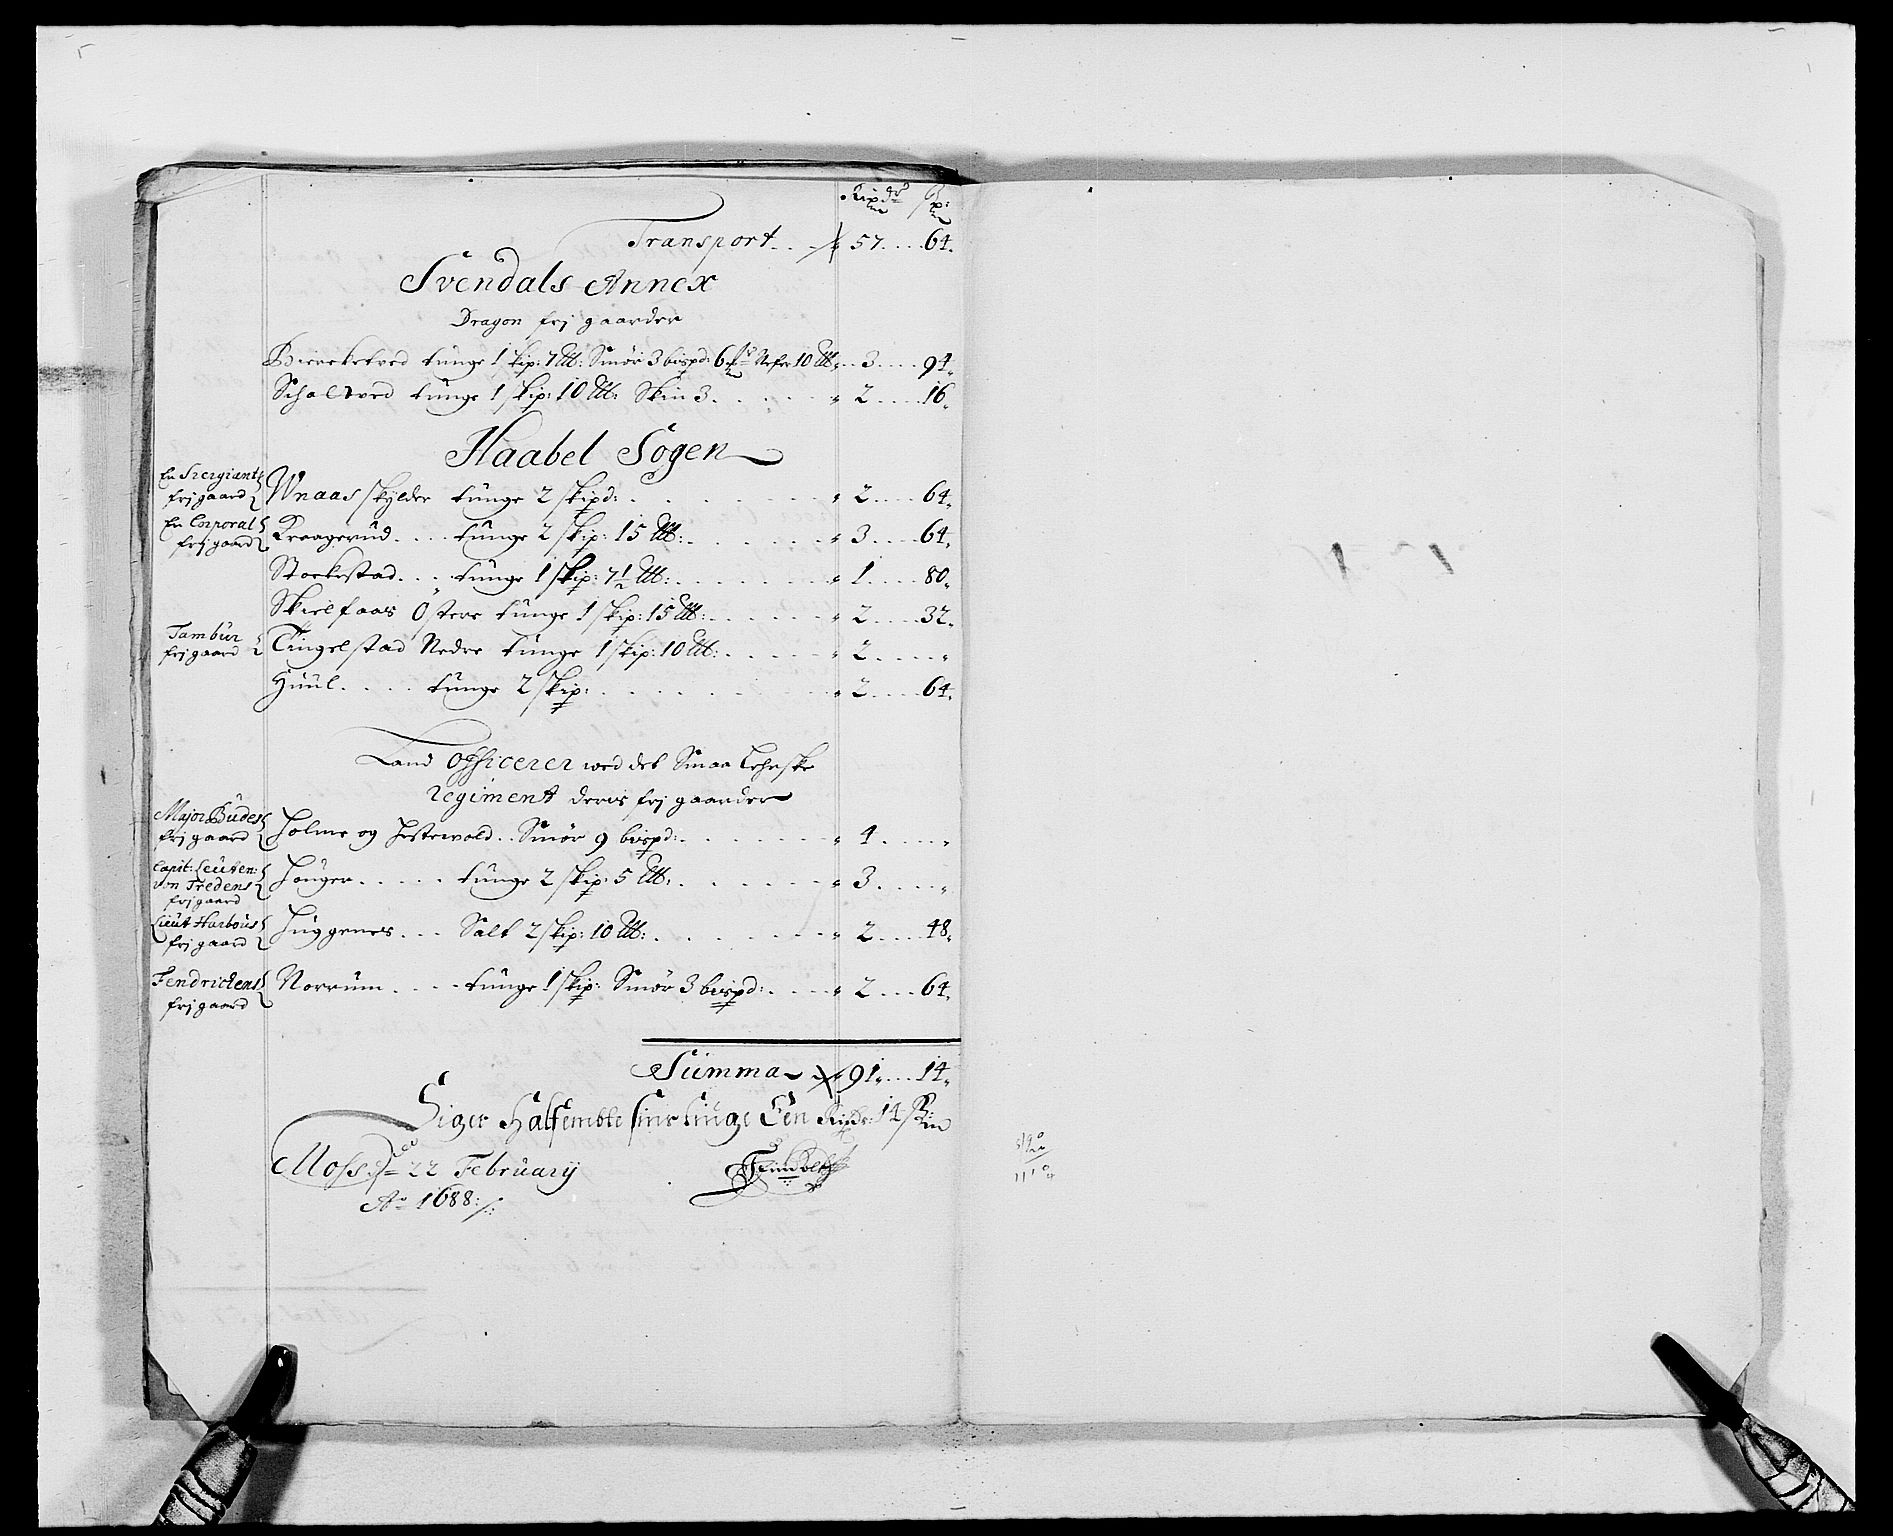 Rixdr ß:
Transport. . . 57. . . . 64.
Svendals Annex
Dragon frj gaarder
tunge 1 skip: 7 Lb: Smør 3 bispd: 6 10 Lb. . . 3. . . . 94.
tunge 1 skip: 10 Lb: Skin 3. . . . . . 2. . . . 16.
Haabel Sogen
En Siergiant frj gaard Wnaas skylder tunge 2 skipd: . . . . . 2. . . . 64.
En Corporal frj gaard Kraagerud. . . . tunge 2 skip: 15 Lb: . . . . . 3. . . . 64.
Stockestad. . . . tunge 1 skip: 7½ Lb: . . . . . 1. . . . 80.
Skielfaas Östere tunge 1 skip: 15 Lb: . . . . . 2. . . . 32.
Tambur frj gaard Tingelstad Nedre tunge 1 skip: 10 Lb: . . . . . 2. . . .
Huul. . . . tunge 2 skip: . . . . . 2. . . . 64.
Land Officerer wed det Smaa Lehnske
Regiment deris frj gaarder
Major Budes frj gaard Holme og . . Smør 9 bispd: . . . . . 4. . . .
Capit: Leuten: von Tredens frj gaard Houger. . . . . tunge 2 skip: 5 Lb: . . . . . 3. . . .
Lieut Harbous frj gaard Huggenes. . . Salt 2 skip: 10 Lb: . . . . . 2. . . . 48.
Fendrickens frj gaard Norrum. . . . tunge 1 skip: Smør 3 bispd: . . . . 2. . . . 64.
Summa 91. . . . 14.
Siger Halfembte sins tiuge Een Rixdr: 14 ß:
Moss d 22 February
Ao 1688:/: